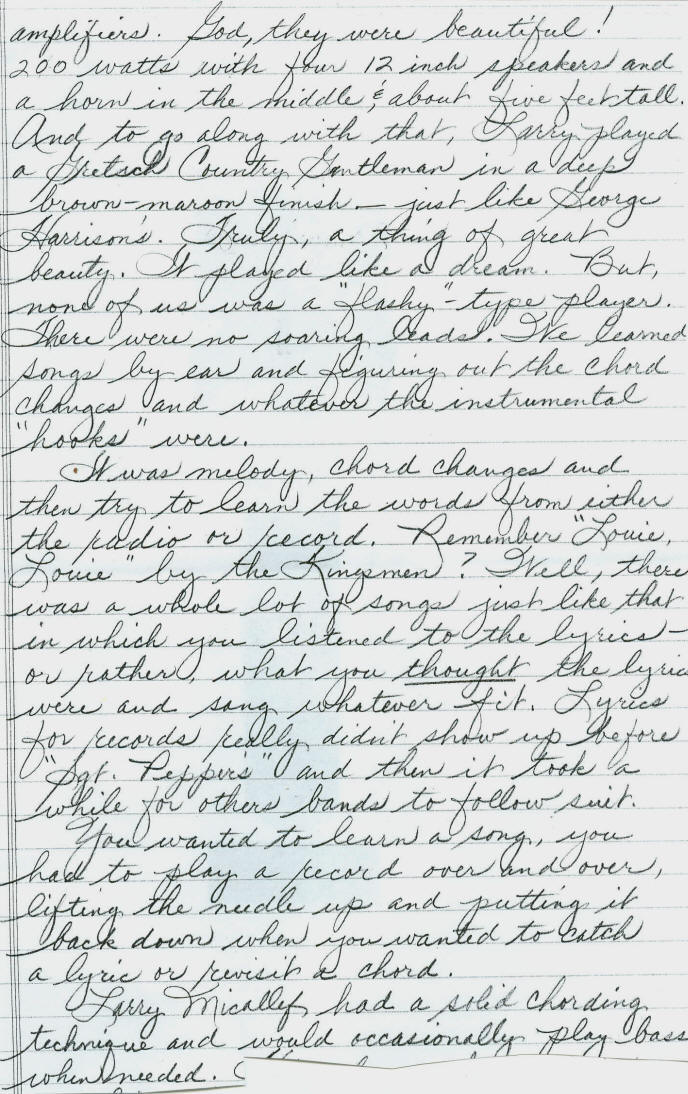 amplifiers. God, they were beautiful!
200 watts with four 12 inch speakers and
a horn in the middle & about five feet tall.
And to go along with that, Larry played
a Gretsch Country Gentleman in a deep
brown-maroon finish — just like George
Harrison's. Truly, a thing of great
beauty. It played like a dream. But,
none of us was a "flashy"-type player.
There were no soaring leads. We learned
songs by ear and figuring out the chord
changes and whatever the instrumental
"hooks" were.
It was melody, chord changes and
then try to learn the words from either
the radio or record. Remember "Louie,
Louie" by the Kingsmen? Well, there
was a whole lot of songs just like that
in which you listened to the lyrics -
or rather, what you thought the lyrics
were and sang whatever fit. Lyrics
for records really didn't show up before
"Sgt. Pepper's" and then it took a
while for others bands to follow suit.
You wanted to learn a song, you
had to play a record over and over,
lifting the needle up and putting it
back down when you wanted to catch
a lyric or revisit a chord.
Larry Micallef had a solid chording
technique and would occasionally play bass
when needed.